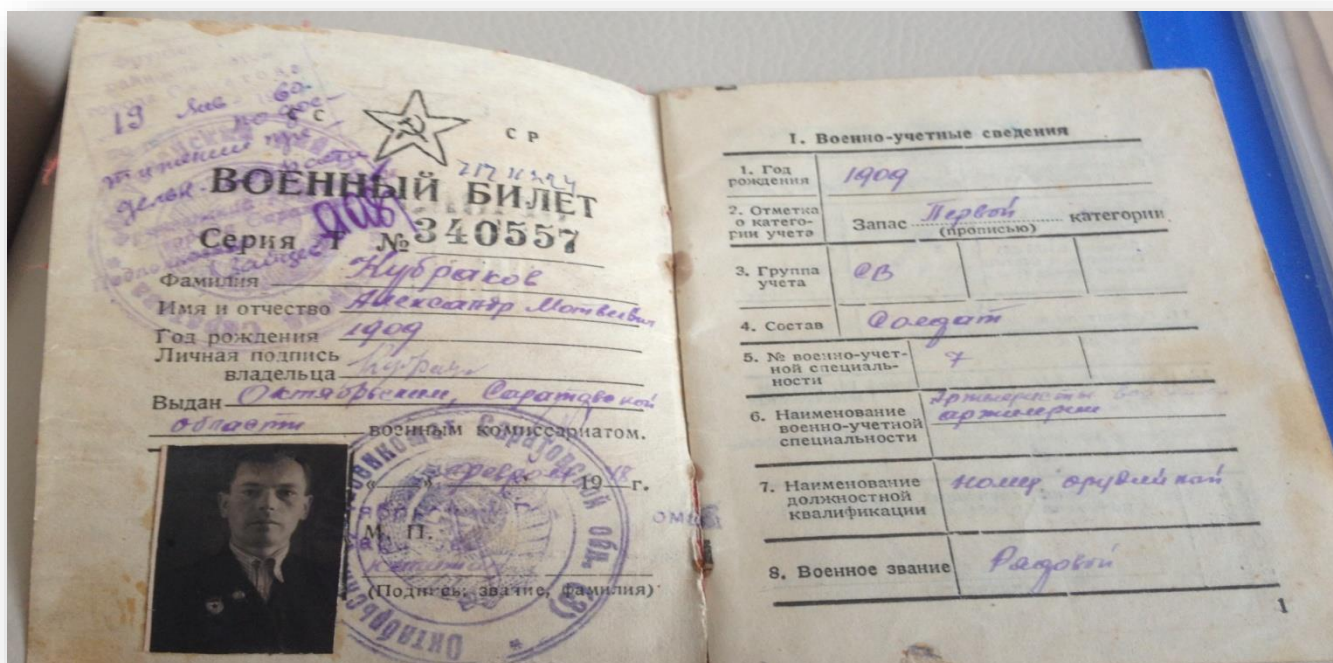 19 Янв. 60
по дос-
тижении пре-
дельн.
СС СР
ВОЕННЫЙ БИЛЕТ
Серия № 340557
Фамилия Кубраков
Имя и отчество Александр Матвеевич
Год рождения 1909
Личная подпись
владельца
Выдан Октябрьским, Саратовской
области военным комиссариатом.
« » февраля 1948 г.
М. П.
(Подпись, звание, фамилия)
I. Военно-учетные сведения
1. Год
рождения 1909
2. Отметка
о катего-
рии учета Запас Первой категории
(прописью)
3. Группа
учета СВ
4. Состав Солдат
5. № военно-учет-
ной специаль-
ности 7
6. Наименование
военно-учетной
специальности артилерии
7. Наименование
должностной
квалификации номер орудийный
8. Военное звание Рядовой
1